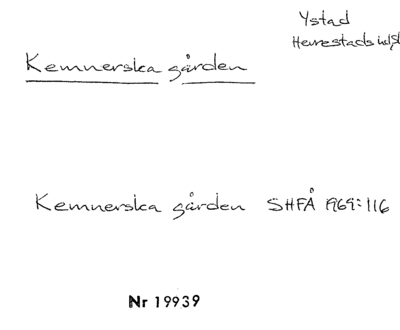 Ystad
Kemnerska gården
Kemnerska gården SHFÅ 1969:116
Nr 19939